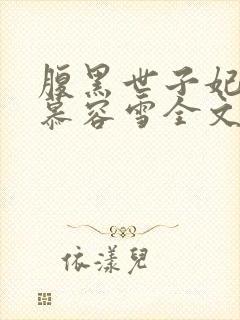 腹黑世子妃
慕容雪全文
依漾兒